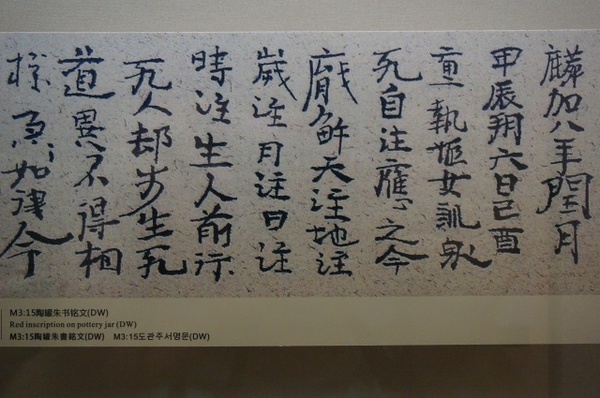 麟加八年閏月
甲辰朔六日己酉
執姬女
死自注應之今
解天注地注
歲注月注日注
時注生人前行
死人却步生死
道異不得相
急〻如律令
M3:15陶罐朱书铭文(DW)
Red inscription on pottery jar (DW)
M3:15陶罐朱書銘文(DW) M3:15도관주서명문(DW)